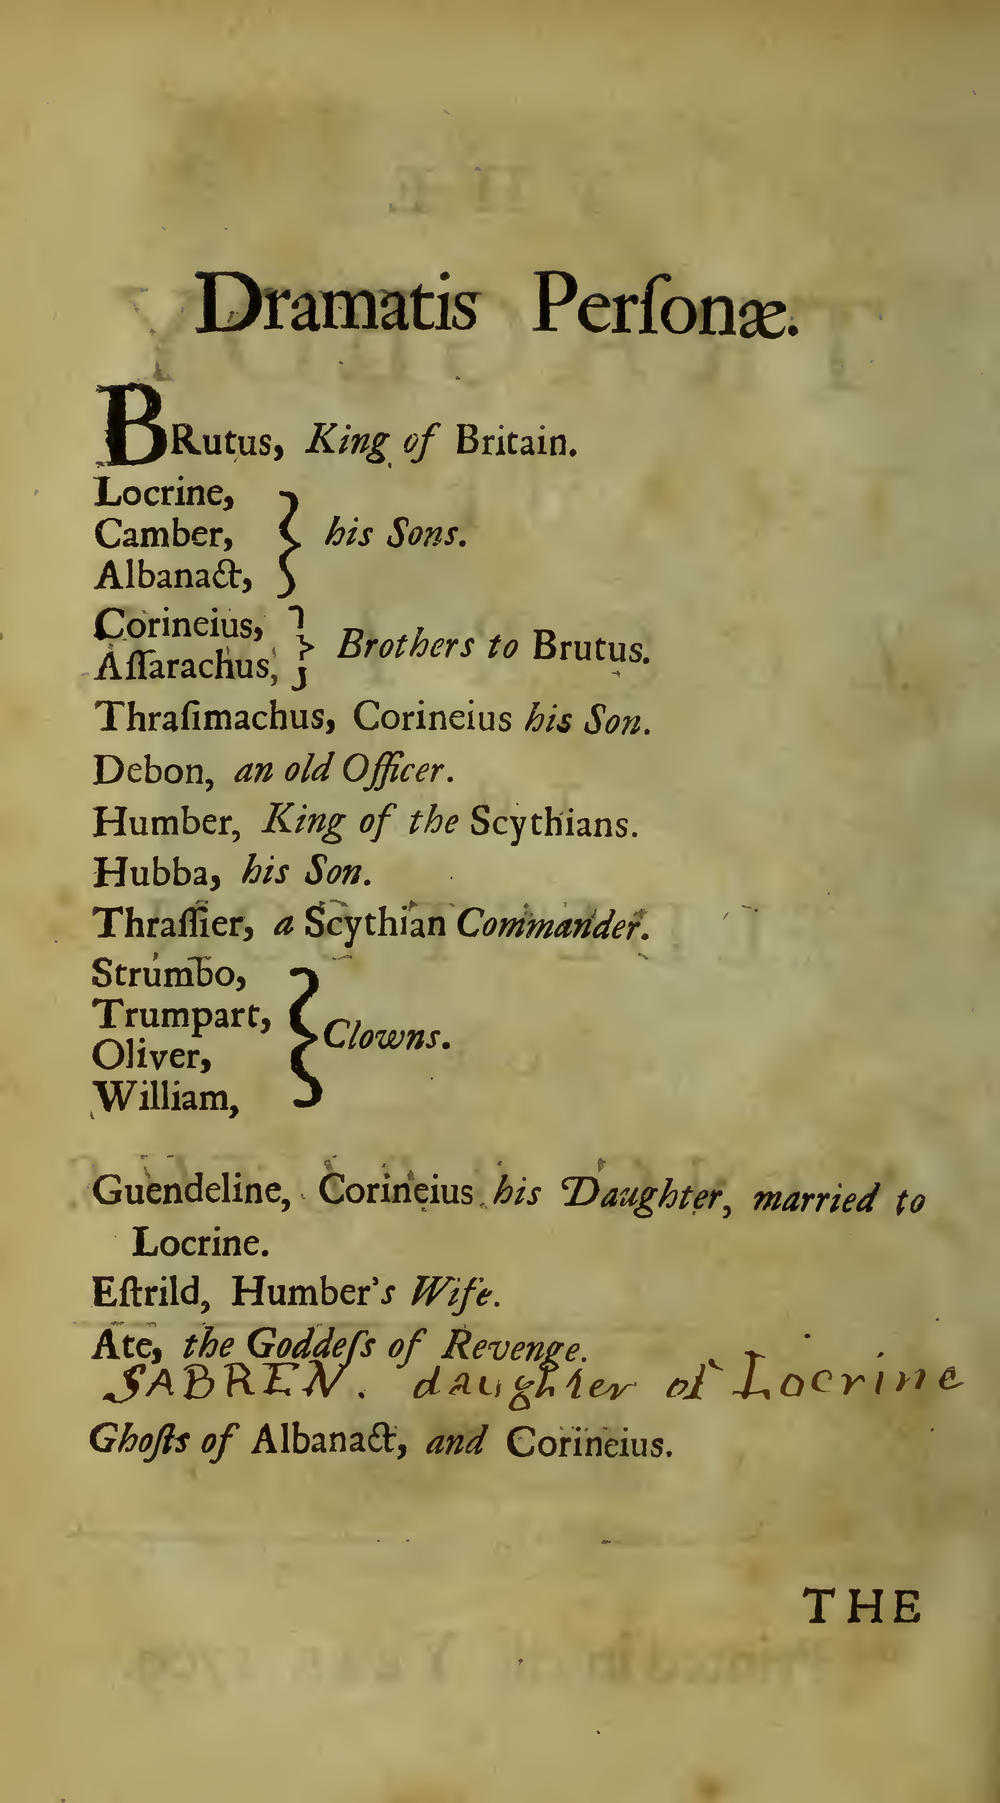 Dramatis Perſonæ.
BRutus, King of Britain.
Locrine,
Camber, } his Sons.
Albanact,
Corineius,
Aſſarachus, } Brothers to Brutus.
Thraſimachus, Corineius his Son.
Debon, an old Officer.
Humber, King of the Scythians.
Hubba, his Son.
Thraſſier, a Scythian Commander.
Strumbo,
Trumpart,
Oliver, } Clowns.
William,
Guendeline, Corineius his Daughter, married to
Locrine.
Eſtrild, Humber's Wife.
Ate, the Goddeſs of Revenge.
SABREN. daughter of Locrine
Ghoſts of Albanact, and Corineius.
THE